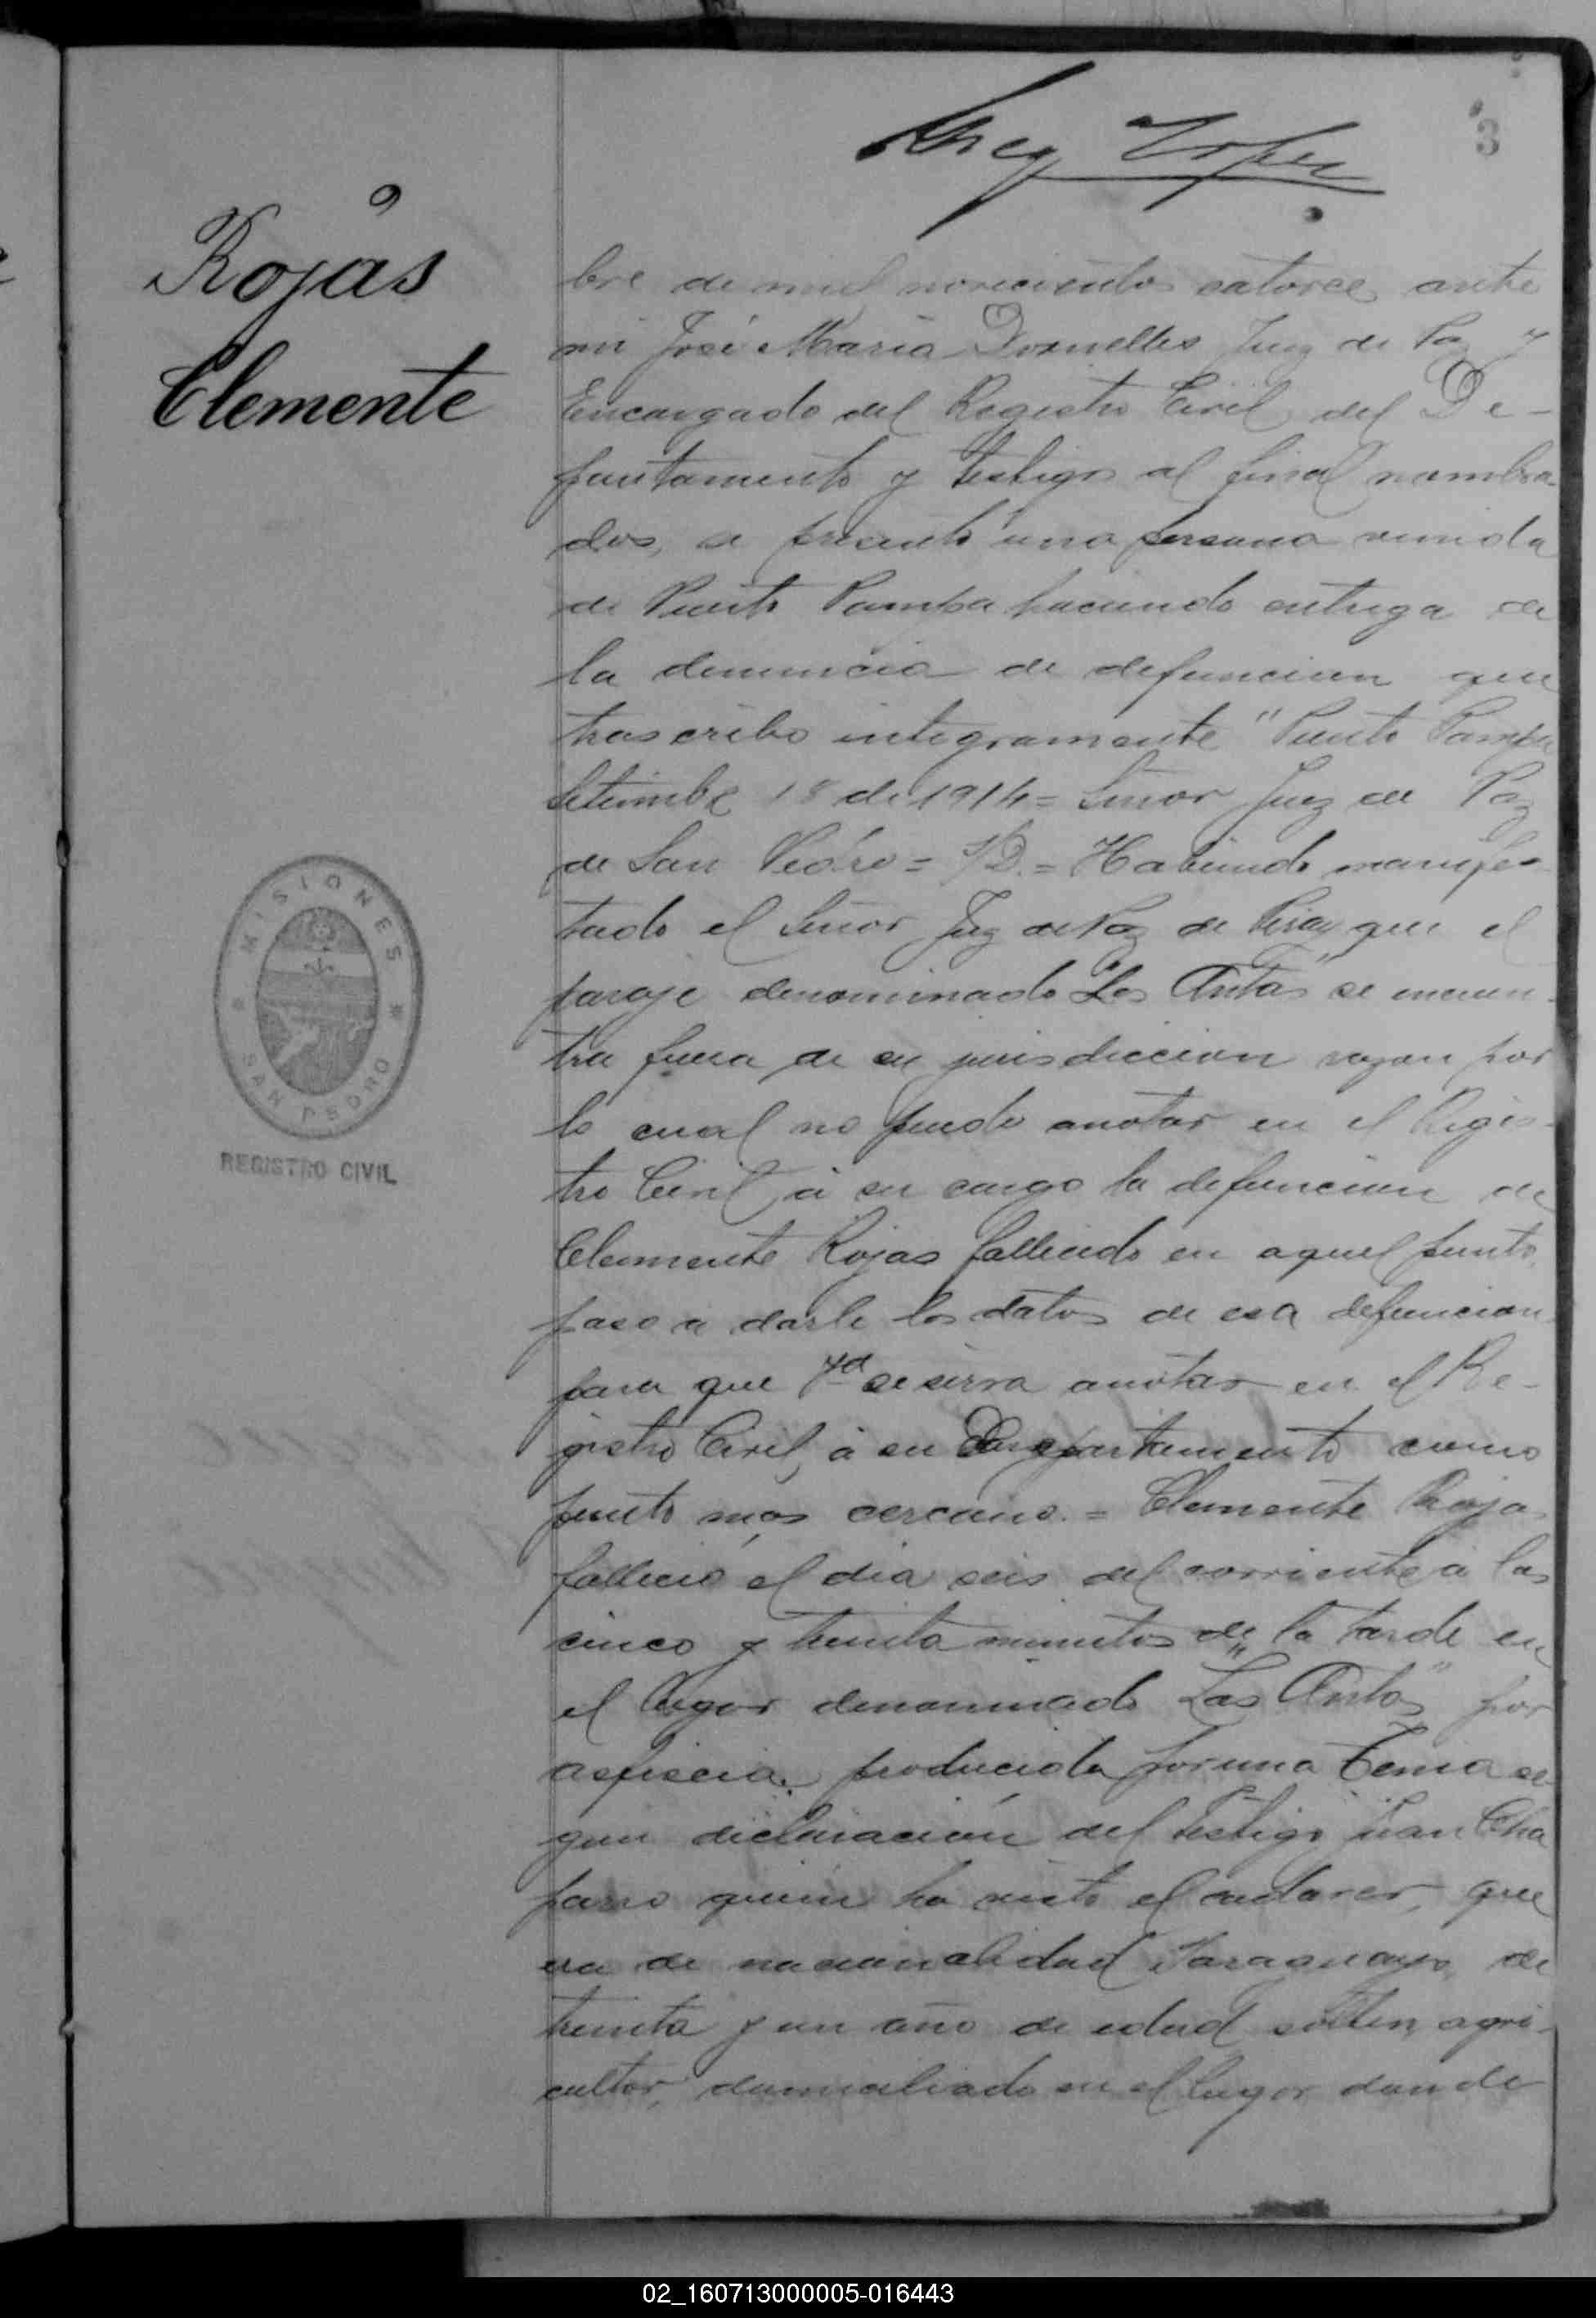 3
Rojas
Clemente
bre de mil novecientos catorce, ante
mi José Maria Dornelles Juez de Paz y
Encargado del Registro Civil del De-
partamento y testigos al final nombra-
dos, se presentó una persona venida
de Puerto Pampa haciendo entrega de
la denuncia de defuncion que
trascribo integramente "Puerto Pampa
Setiembre 18 de 1914 = Señor Juez de Paz
de San Pedro = S/D. = Habiendo manifes-
tado el Señor Juez de Paz de Piray que el
paraje denominado "Las Antas" se encuen-
tra fuera de su jurisdiccion razon por
lo cual no puede anotar en el Regis-
tro Civil á su cargo la defuncion de
Clemente Rojas fallecido en aquel punto,
paso a darle los datos de esa defuncion
para que Vd se sirva anotar en el Re-
gistro Civil, á su Departamento como
punto más cercano. = Clemente Rojas
falleció el dia seis del corriente á las
cinco y treinta minutos de la tarde en
el lugar denominado "Las Antas" por
asficcia, producida por una Tenia se-
gun declaración del testigo Juan Cha
parro quien ha visto el cadaver, que
era de nacionalidad Paraguayo, de
treinta y un año de edad soltero, agri-
cultor, domiciliado en el lugar donde
MISIONES
SAN PEDRO
REGISTRO CIVIL
02_160713000005-016443